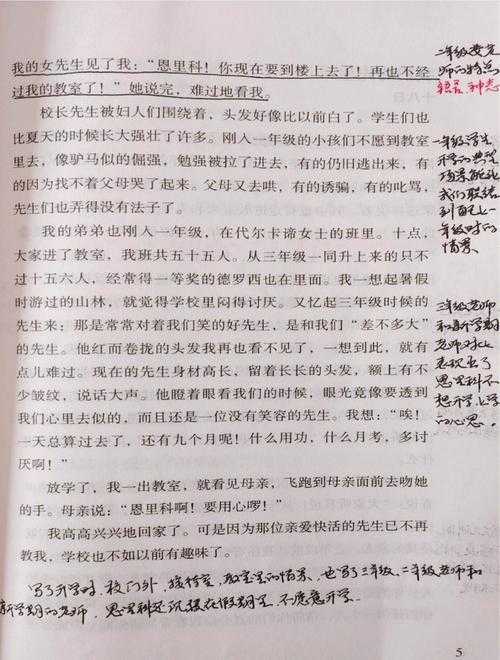 我的女先生见了我：“恩里科！你现在要到楼上去了！再也不经
过我的教室了！”她说完，难过地看我。
校长先生被妇人们围绕着，头发好像比以前白了。学生们也
比夏天的时候长大强壮了许多。刚入一年级的小孩们不愿到教室
里去，像驴马似的倔强，勉强被拉了进去，有的仍旧逃出来，有
的因为找不着父母哭了起来。父母又去哄，有的诱骗，有的叱骂，
先生们也弄得没有法子了。
我的弟弟也刚入一年级，在代尔卡谛女士的班里。十点，
大家进了教室，我班共五十五人。从三年级一同升上来的只不
过十五六人，经常得一等奖的德罗西也在里面。我一想起暑假
时游过的山林，就觉得学校里闷得讨厌。又忆起三年级时候的
先生来：那是常常对着我们笑的好先生，是和我们“差不多大”
的先生。他红而卷拢的头发我再也看不见了，一想到此，就有
点儿难过。现在的先生身材高长，留着长长的头发，额上有不
少皱纹，说话大声。他瞪着眼看我们的时候，眼光竟像要透到
我们心里去似的，而且还是一位没有笑容的先生。我想：“唉！
一天总算过去了，还有九个月呢！什么用功，什么月考，多讨
厌啊！”
放学了，我一出教室，就看见母亲，飞跑到母亲面前去吻她
的手。母亲说：“恩里科啊！要用心啰！”
我高高兴兴地回家了。可是因为那位亲爱快活的先生已不再
教我，学校也不如以前有趣味了。
二年级女老
师的特点
神态
一年级学生
开学的典型
我们联结
到自己一
年级时的
情景
三年级老师
和新学期
老师对比
表现出了
恩里科不
想开学上学
的心思。
写了开学时，校门外，接待室，教室里的情景，也写了三年级、二年级老师和
新学期的老师，恩里科还沉浸在假期里，不愿意开学。
5